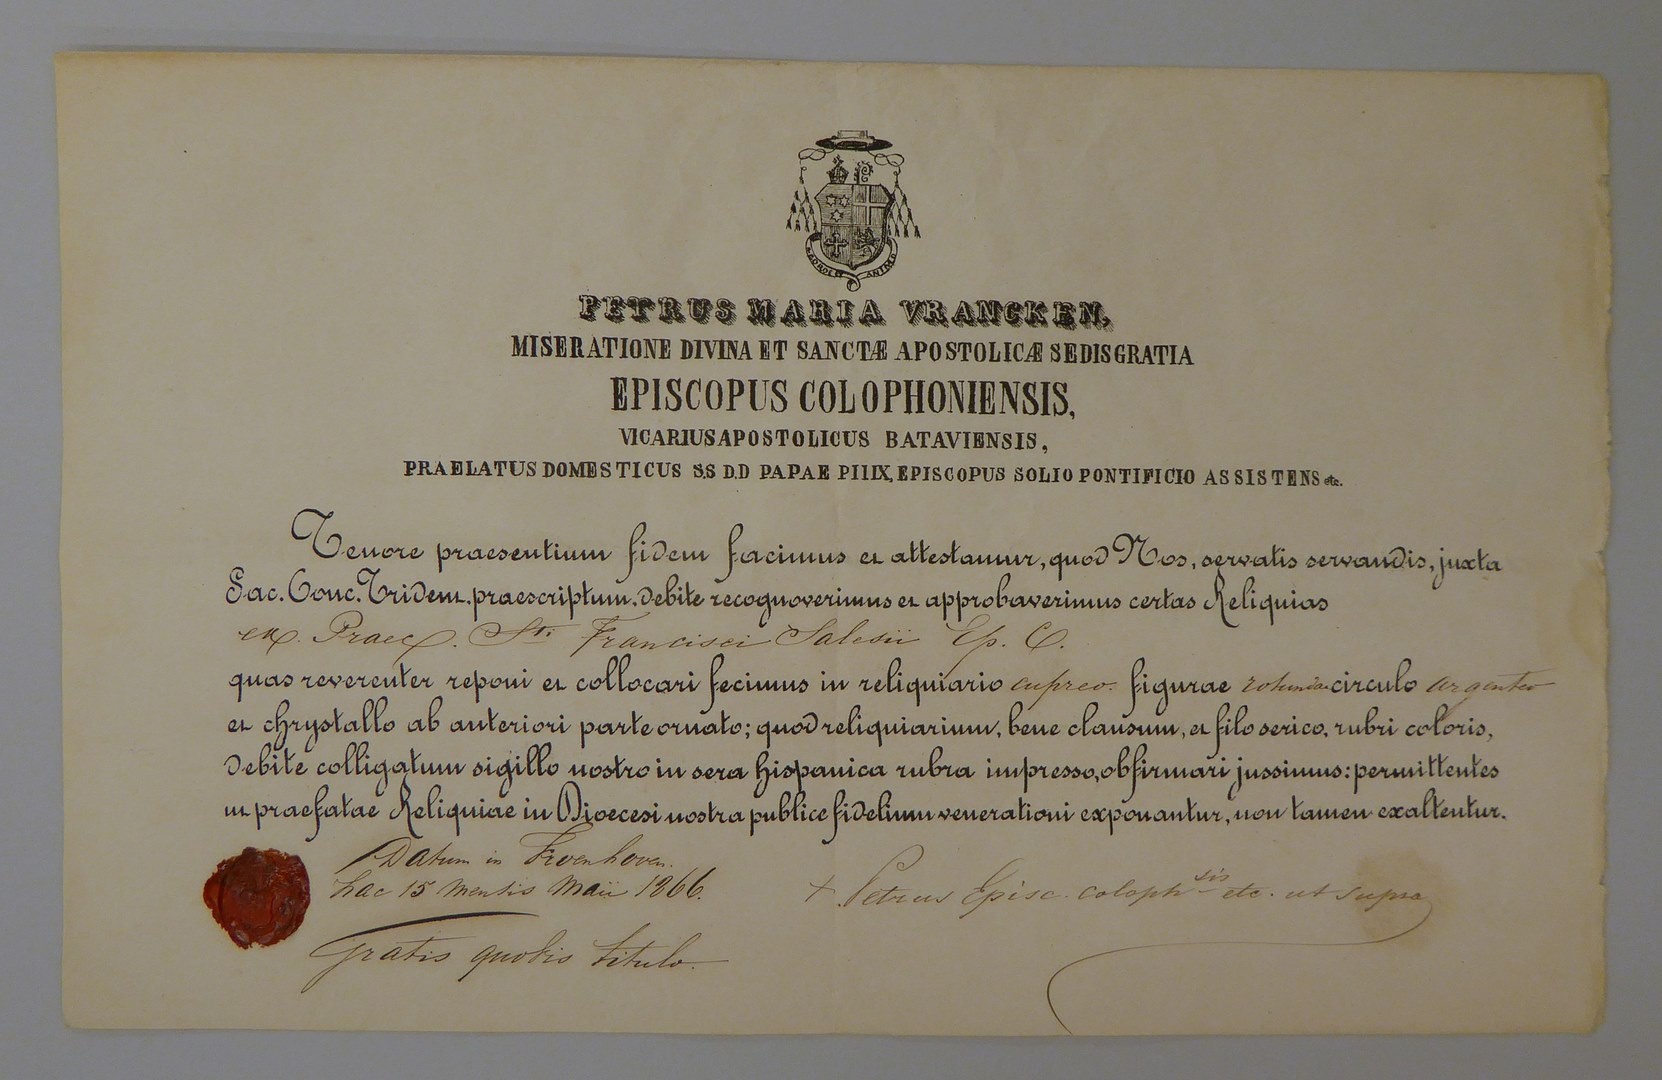 CORDE ET ANIMO
PETRUS MARIA VRANCKEN,
MISERATIONE DIVINA ET SANCTÆ APOSTOLICÆ SEDIS GRATIA
EPISCOPUS COLOPHONIENSIS,
VICARIUS APOSTOLICUS BATAVIENSIS,
PRAELATUS DOMESTICUS S.S D.D PAPAE PII IX, EPISCOPUS SOLIO PONTIFICIO ASSISTENS etc.
Tenore praesentium fidem facimus et attestamur, quod Nos, servatis servandis, juxta
Sac. Conc. Trident. praescriptum, debite recognoverimus et approbaverimus certas Reliquias
ex Praec. Sti Francisci Salesii Ep. C.
quas reverenter reponi et collocari fecimus in reliquiario cupreo figurae rotundae circulo argenteo
et chrystallo ab anteriori parte ornato; quod reliquiarium, bene clausum, et filo serico, rubri coloris,
debite colligatum sigillo nostro in sera hispanica rubra impresso, obfirmari jussimus: permittentes
ut praefatae Reliquiae in Dioecesi nostra publice fidelium venerationi exponantur, non tamen exaltentur.
Datum in
hac 15 mensis Maii 1866.
+ Petrus Episc. colophsis etc. ut supra
Gratis quovis titulo.